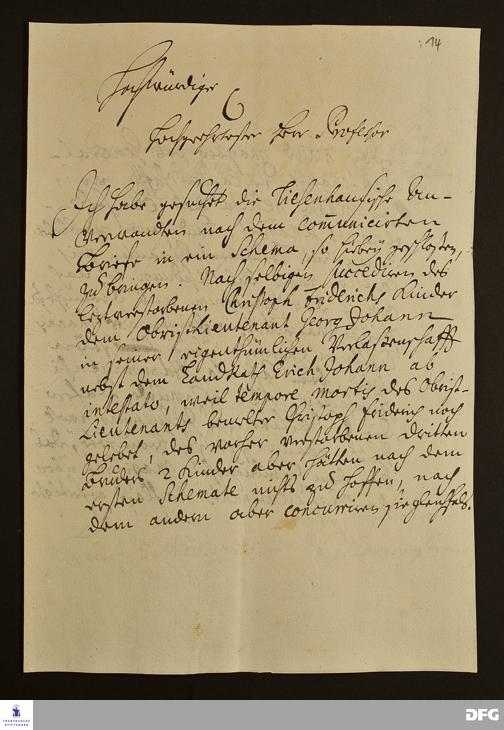 : 14
Hochwürdiger
Hochgeehrtester Herr Professor
Ich habe gesuchet die Tiesenhausische An-
verwandten nach dem communicirten
Briefe in ein Schema, so hiebey geschloßen,
zu bringen. Nach selbigen succediren des
letztverstorbenen Christoph Friderichs Kinder
dem Obristlieutenant Georg Johann
in seiner eigenthümlichen Verlaßenschafft
nebst dem Landrath Erich Johann ab
intestato, weil tempore mortis des Obrist-
Lieutenants bemelter Christoph Friderich noch
gelebet, des vorher verstorbenen dritten
Bruders 2 Kinder aber hätten nach dem
ersten Schemate nichts zu hoffen, nach
dem andern aber concurriren sie gleichfals.
FRANCKESCHE
STIFTUNGEN
DFG